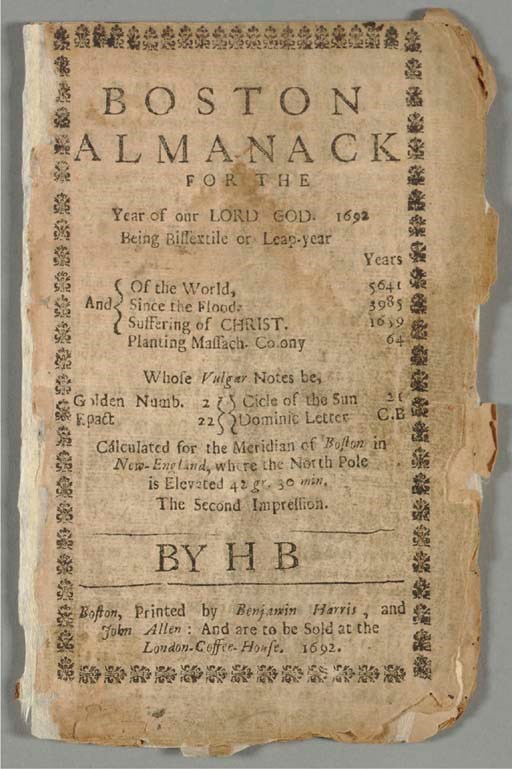 BOSTON
ALMANACK
FOR THE
Year of our LORD GOD. 1692
Being Biſſextile or Leap-year
Years
Of the World, 5641
And Since the Flood. 3985
Suffering of CHRIST. 1659
Planting Maſſach. Colony 64
Whose Vulgar Notes be,
Golden Numb. 2 Cicle of the Sun 21
Epact 22 Dominic Letter C.B
Calculated for the Meridian of Boſton in
New-England, where the North Pole
is Elevated 42 gr. 30 min.
The Second Impreſſion.
BY H B
Boſton, Printed by Benjamin Harris, and
John Allen: And are to be Sold at the
London-Coffee-Houſe. 1692.